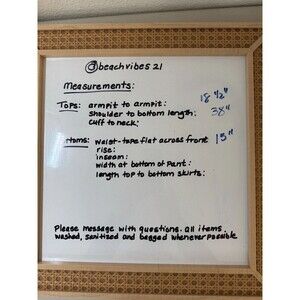 @beachvibes 21
Measurements:
Tops: armpit to armpit: 18 1/2"
shoulder to bottom length: 38"
cuff to neck:
ttoms: waist-tape flat across front 15"
rise:
inseam:
width at bottom of pant:
length top to bottom skirts:
Please message with questions. All items
washed, sanitized and bagged whenever possible